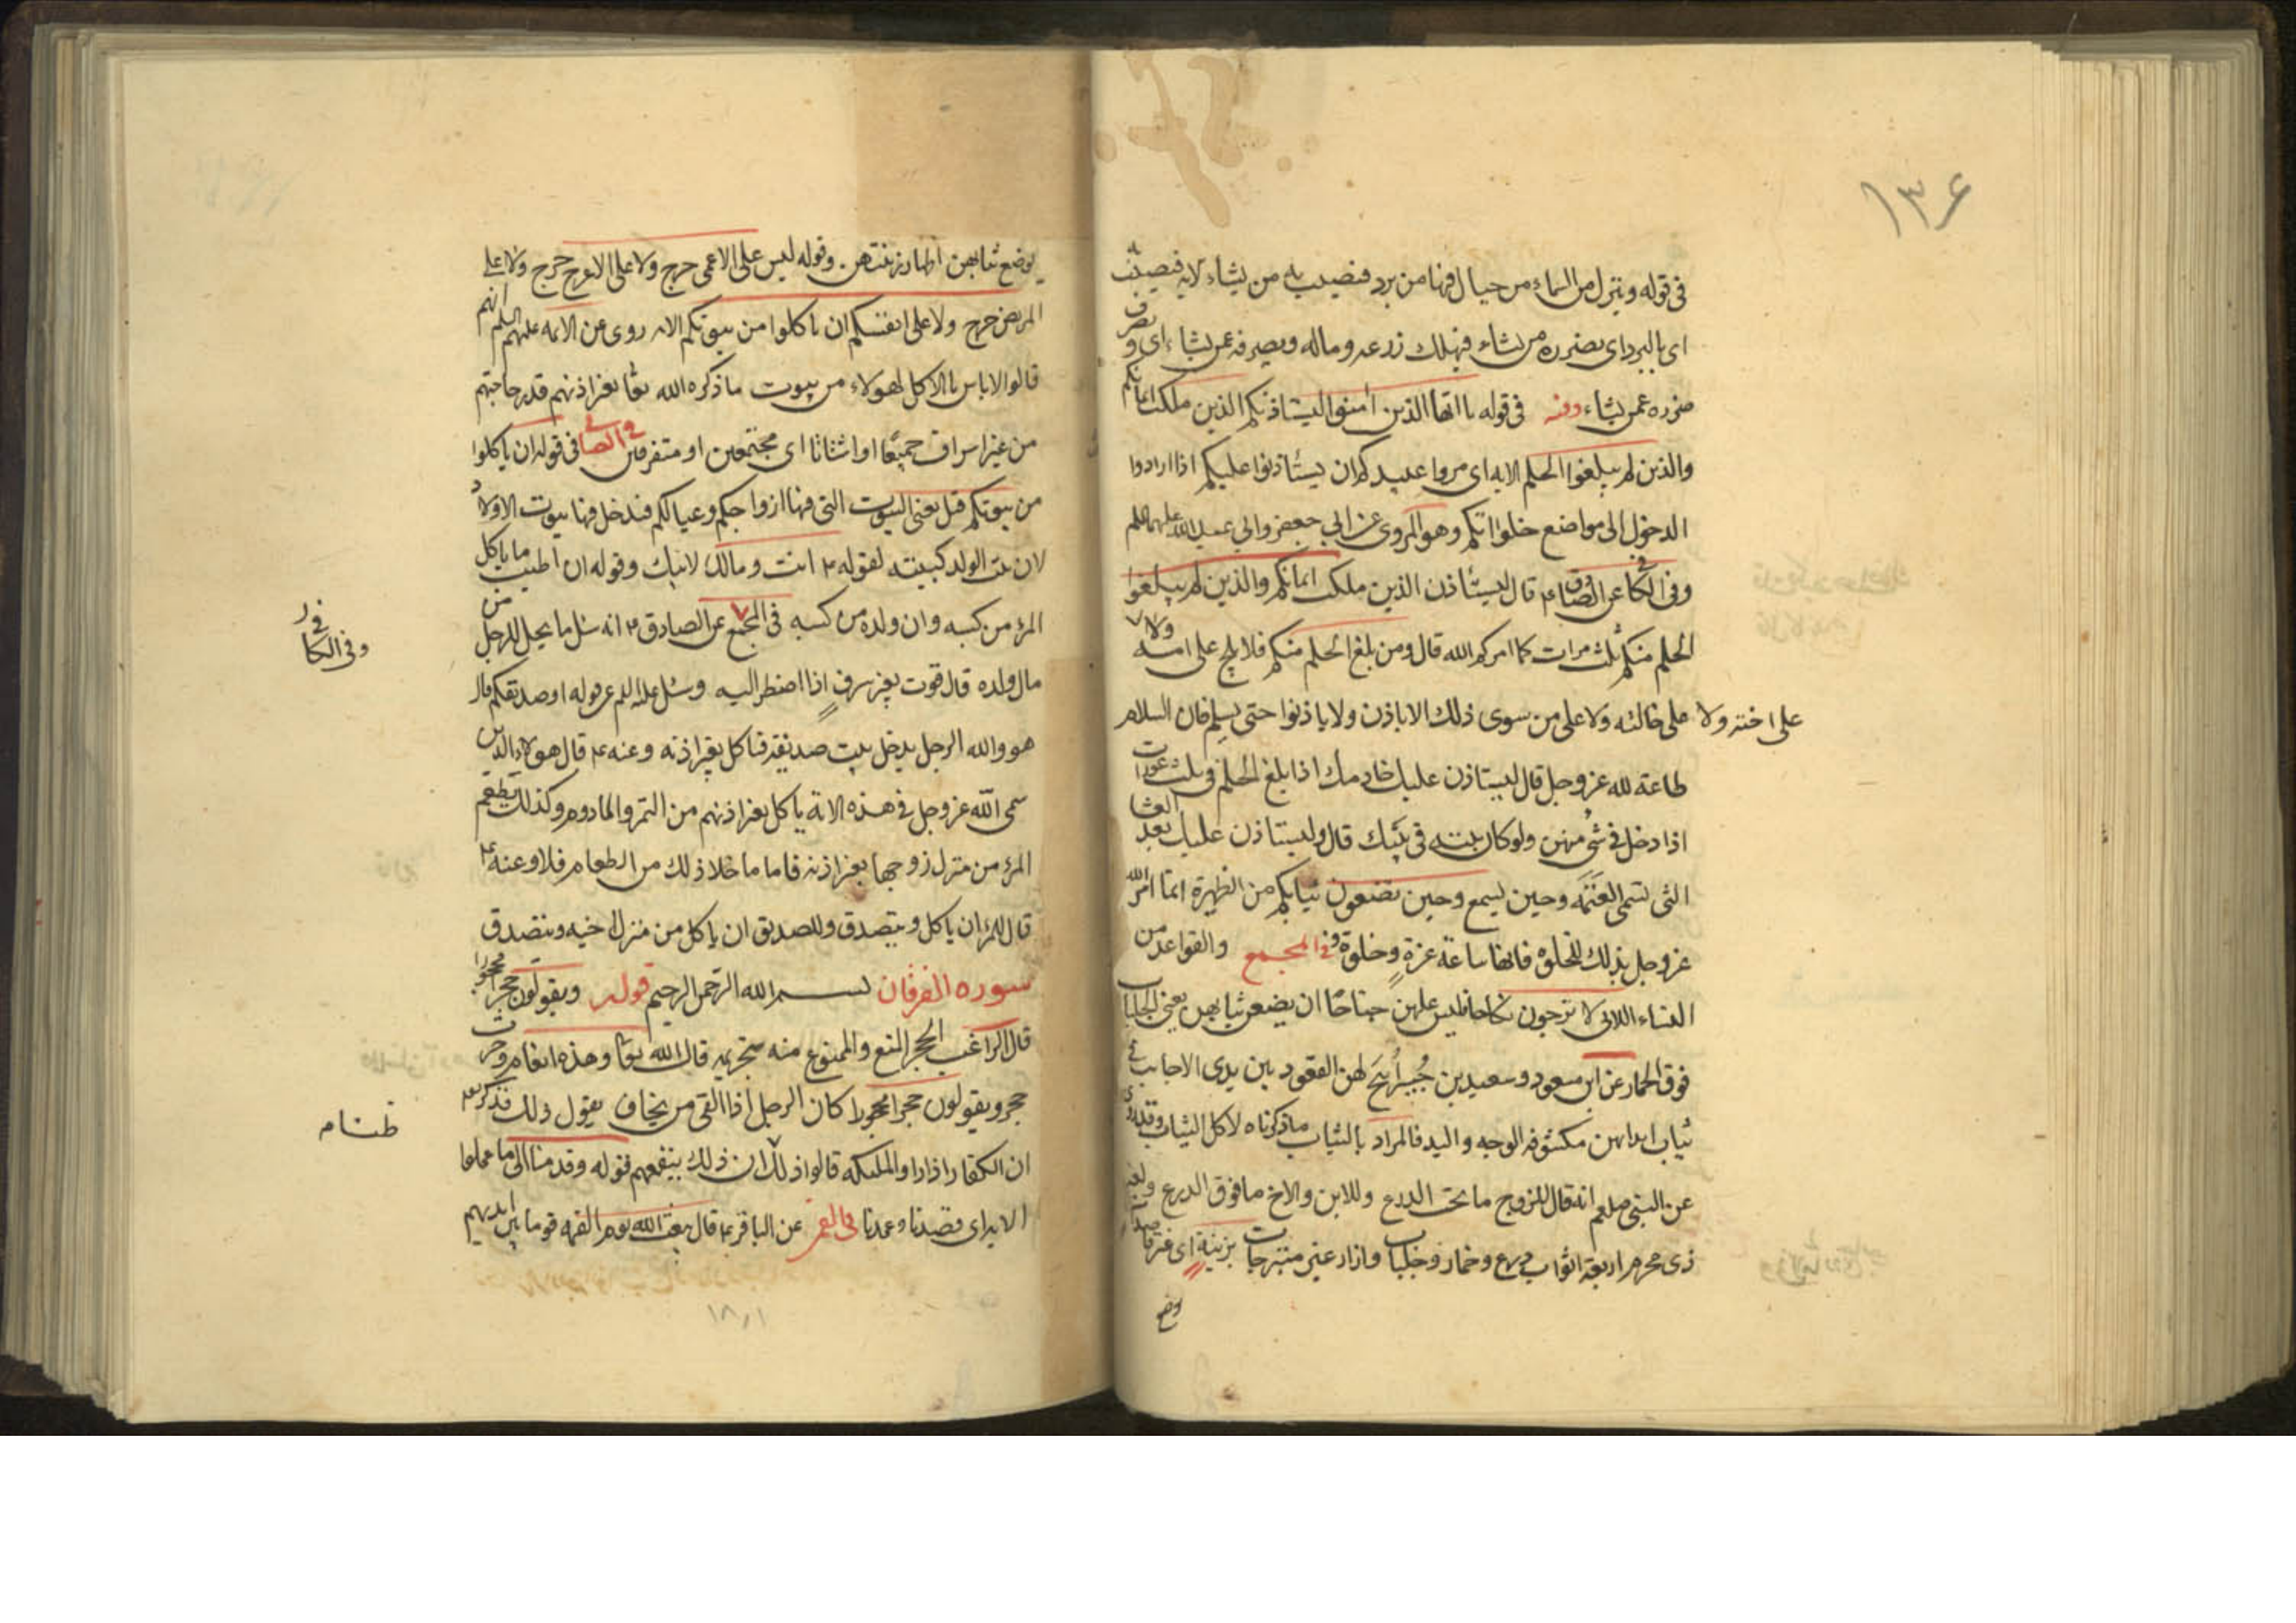 ١٣۶
فى قوله وينزل من السماء من جبال فيها من برد فيصيب به من يشاء لايه فيصيب
اى بالبرد اى يضرره من يشاء فيهلك زرعه وماله ويصرفه عمن يشاء اى ويصرف
ضرره عمن يشاء وفيه فى قوله يا ايها الذين امنوا ليستاذنكم الذين ملكت ايمانكم
والذين لم يبلغوا الحلم الايه اى مروا عبيدكم ان يستاذنوا عليكم اذا ارادوا
الدخول الى مواضع خلواتكم وهو المروى عن ابي جعفر وابي عبد الله عليهما السلم
وفى الكافى عن الصادق ع قال ليستاذن الذين ملكت ايمانكم والذين لم يبلغوا
الحلم منكم ثلث مرات كما امركم الله قال ومن بلغ الحلم منكم فلا يلج على امه ولا
على اخته ولا على خالته ولا على من سوى ذلك الا باذن ولا ياذنوا حتى يسلم فان السلام
طاعة لله عز وجل قال ليستاذن عليك خادمك اذا بلغ الحلم فى ثلث عورات
اذا دخل فى شئ منهن ولو كان بيته فى بيتك قال وليستاذن عليك بعد العشا
التى تسمى العتمه وحين يسبح وحين تضعون ثيابكم من الظهيرة انما امر الله
عز وجل بذلك للخلوة فانها ساعة غرة وخلوة وفى المجمع والقواعد من
النساء اللاتى لا ترجون نكاحا فليس عليهن جناحا ان يضعن ثيابهن يعنى الجلباب
فوق الخمار عن ابن مسعود وسعيد بن جبير أبيح لهن القعود بين يدى الاجانب فى
ثياب ابدانهن مكشوفه الوجه واليد فالمراد بالثياب ماذكرناه لا كل الثياب وقد روى
عن النبى صلعم انه قال للزوج ما تحت الدرع وللابن والاخ ما فوق الدرع ولغير
ذى محرم اربعة اثواب درع وخمار وجلباب وازار غير متبرجات بزينة اى غير قاصدات
بوضع ثيابهن اظهار زينتهن وقوله ليس على الاعمى حرج ولا على الاعرج حرج ولا على
المريض حرج ولا على انفسكم ان تاكلوا من بيوتكم الايه روى عن الائمه عليهم السلم انهم
قالوا لا باس بالاكل لهولاء من بيوت ما ذكره الله تعا بغير اذنهم قدر حاجتهم
من غير اسراف جميعا او اشتاتا اى مجتمعين او متفرقين فى الصافى فى قوله ان ياكلوا
من بيوتكم قيل يعنى البيوت التى فيها ازواجكم وعيالكم فيدخل فيها بيوت الاولاد
لان بيت الولد كبيته لقوله ع انت ومالك لابيك وقوله ان اطيب ما ياكل
المرء من كسبه وان ولده من كسبه فى المجمع عن الصادق ع انه سئل ما يحل للرجل من
وفى الكافى
مال ولده قال قوت بغير سرف اذا اضطر اليه وسئل عليه السلم عن قوله او صديقكم قال
هو والله الرجل يدخل بيت صديقه فياكل بغير اذنه وعنه ع قال هولاء الذين
سمى الله عز وجل فى هذه الاية ياكل بغير اذنهم من التمر والمادوم وكذلك تطعم
المرء من منزل زوجها بغير اذنه فاما ما خلا ذلك من الطعام فلا وعنه ع
قال للمرء ان ياكل ويتصدق وللصديق ان ياكل من منزل اخيه ويتصدق
سورة الفرقان بسم الله الرحمن الرحيم قوله ويقولون حجرا محجورا
قال الراغب الحجر المنع والممنوع منه بتحريمه قال الله تعا وهذه انعام وحرث
حجر ويقولون حجرا محجورا كان الرجل اذا القى من يخاف يقول ذلك فذكر تع
ظنا م
ان الكفار اذا راوا الملئكه قالوا ذلك ان ذلك ينفعهم قوله وقدمنا الى ما عملوا
الايه اى قصدنا وعمدنا فى القمى عن الباقر ع قال يبعث الله يوم القيمه قوما بين ايديهم